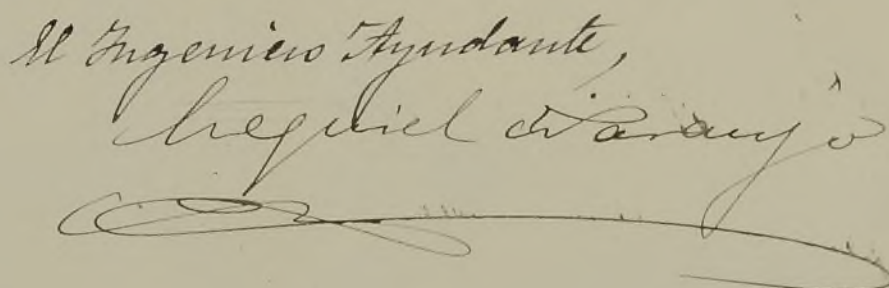 El Ingeniero Ayudante,
Ezequiel Naranjo